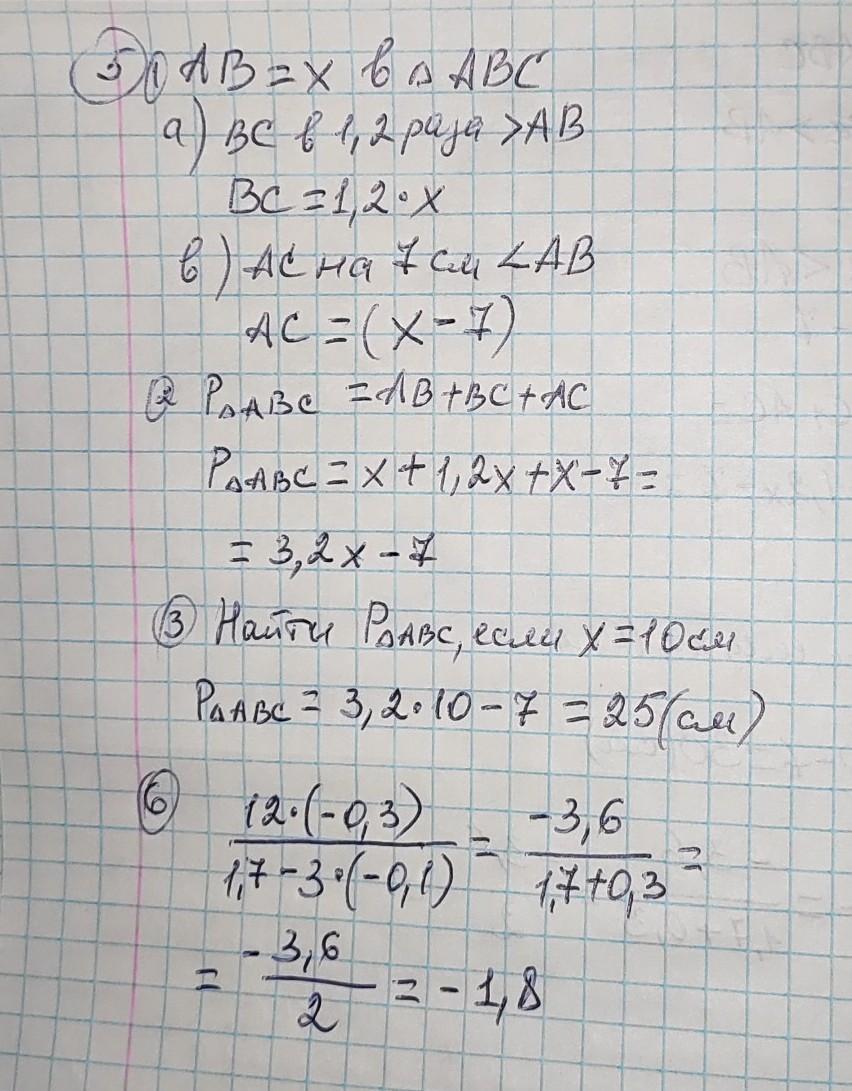 5) 1) AB = x в △ABC
а) BC в 1,2 раза > AB
BC = 1,2 · x
в) AC на 7 см < AB
AC = (x - 7)
2 P△ABC = AB + BC + AC
P△ABC = x + 1,2x + x - 7 =
= 3,2x - 7
3 Найти P△ABC, если x = 10 см
P△ABC = 3,2 · 10 - 7 = 25 (см)
6 12·(-0,3) / 1,7 - 3·(-0,1) = -3,6 / 1,7 + 0,3 =
= -3,6 / 2 = -1,8